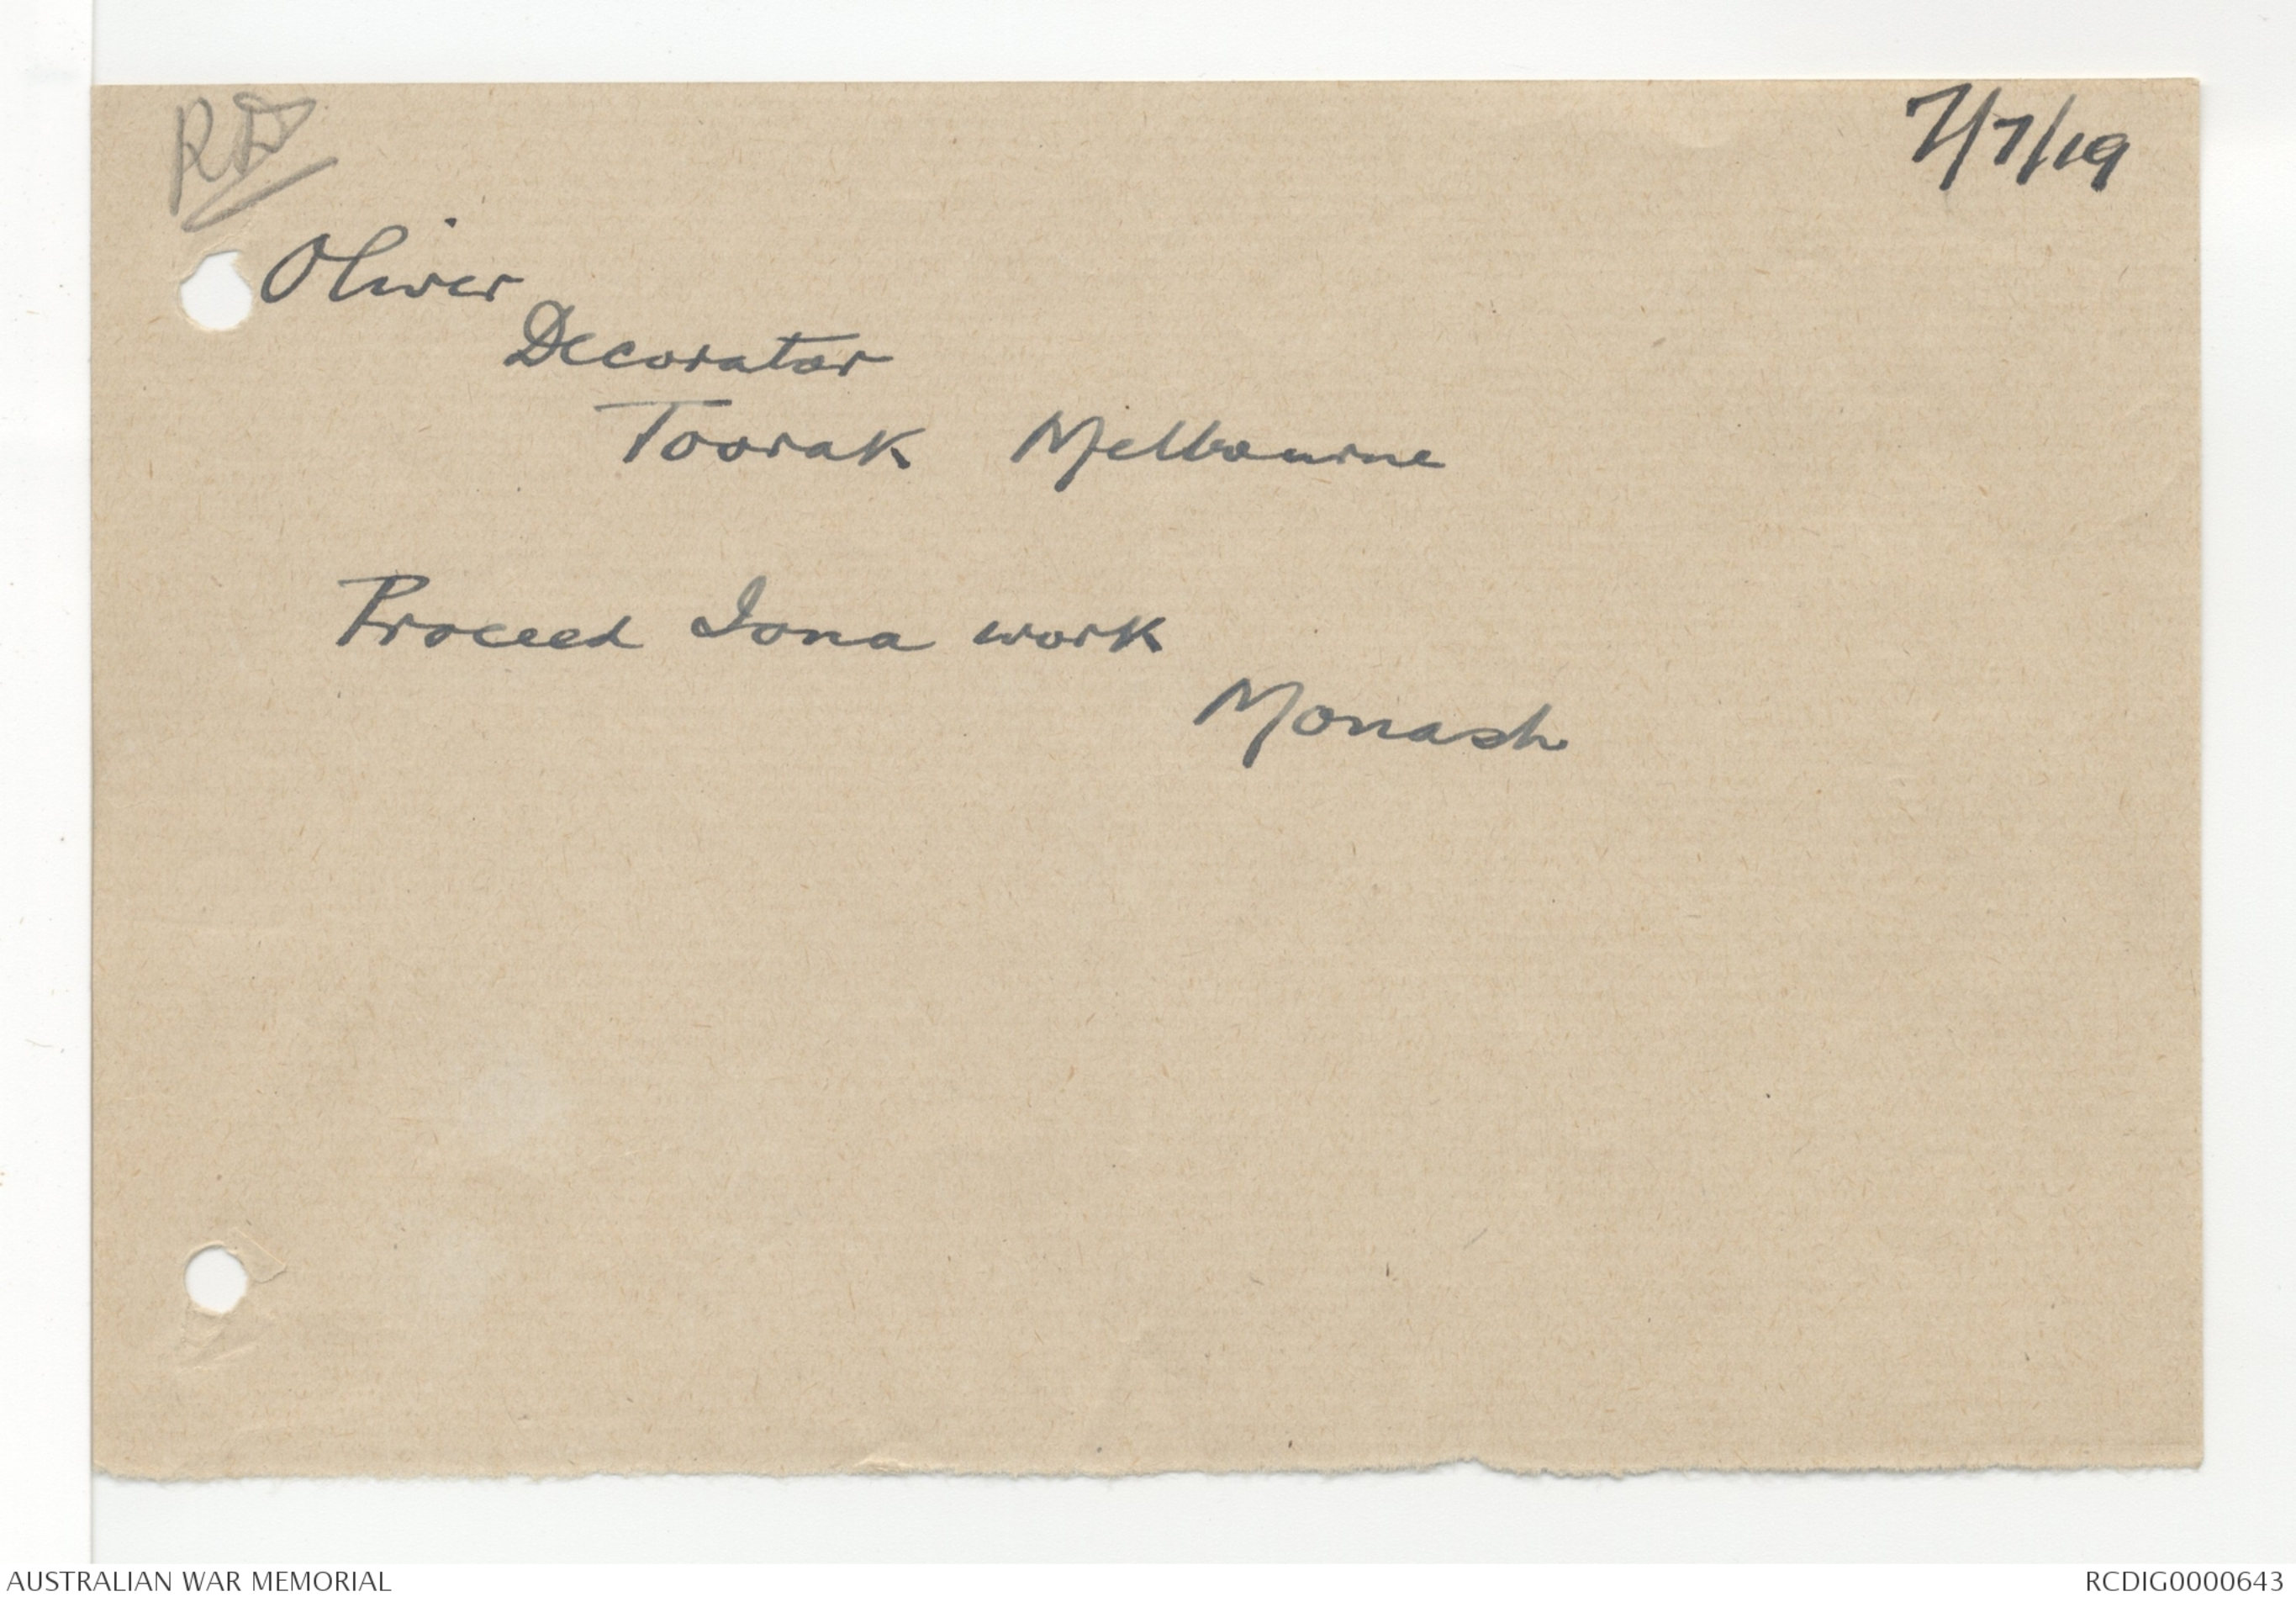 7/7/19
Oliver
Decorator
Toorak Melbourne
Proceed Iona work
Monash
AUSTRALIAN WAR MEMORIAL
RCDIG0000643